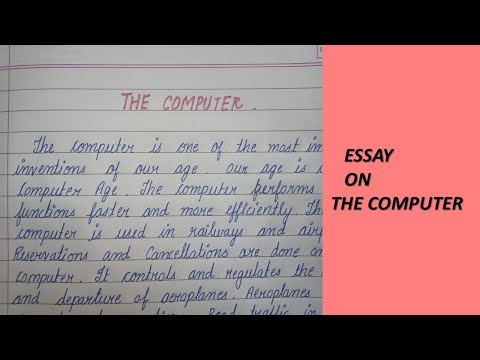 THE COMPUTER.
The computer is one of the most
inventions of our age. Our age is
Computer Age. The computer performs
functions faster and more efficiently.
computer is used in railways and
Reservations and Cancellations are done
computer. It controls and regulates the
and departure of aeroplanes. Aeroplanes
Road traffic in
ESSAY
ON
THE COMPUTER